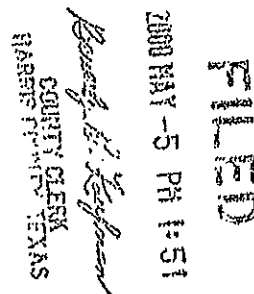 FILED
2000 MAY -5 PM 1:51
Beverly B. Kaufman
COUNTY CLERK
HARRIS COUNTY TEXAS